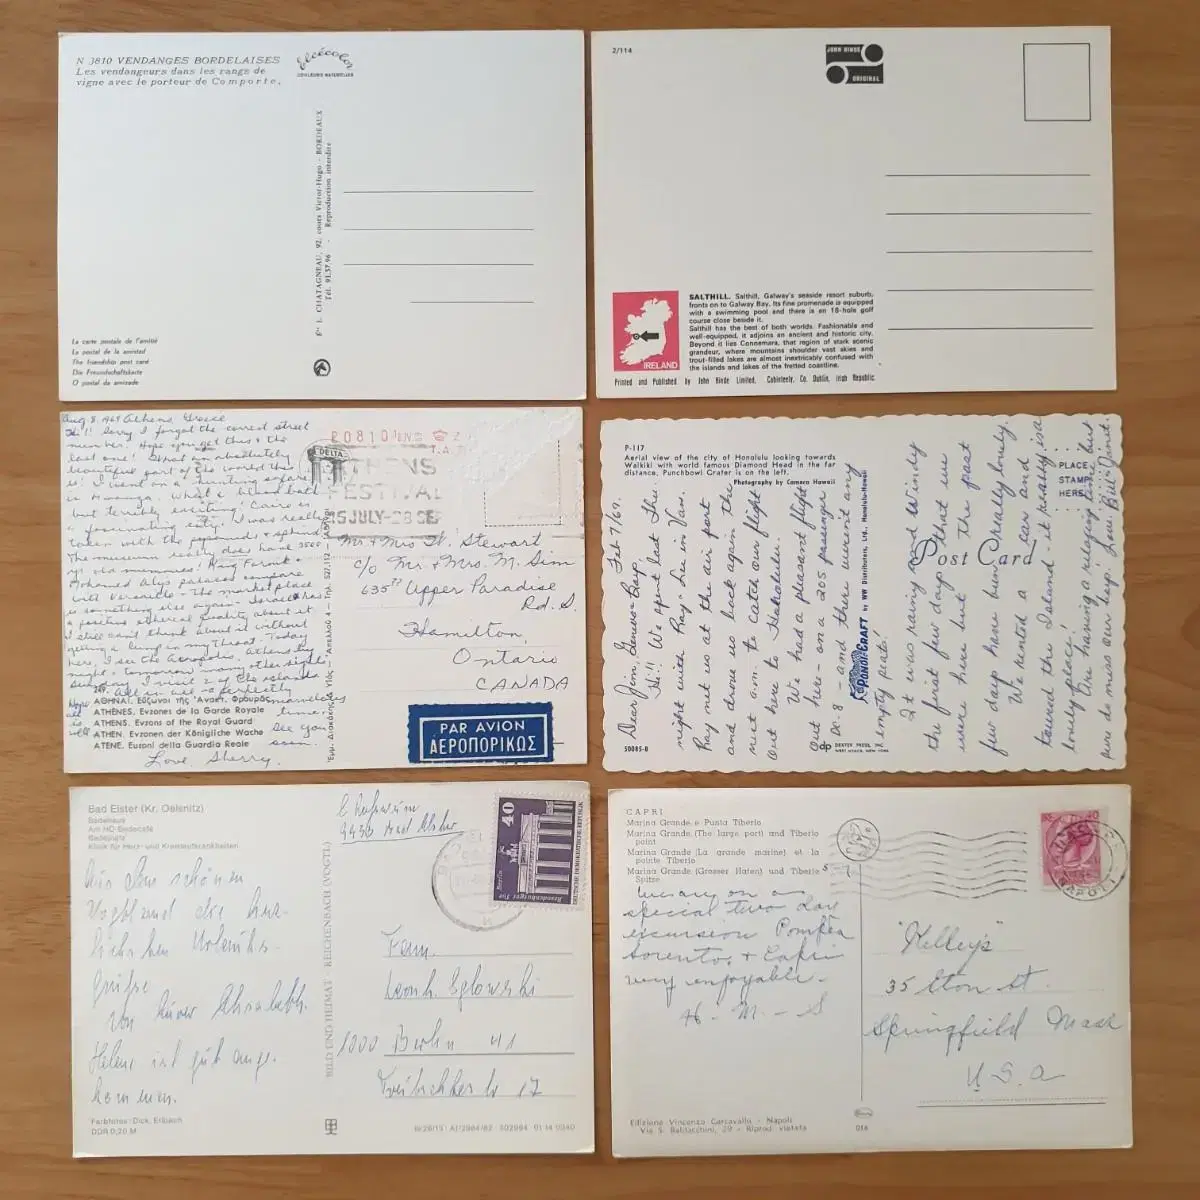 N 3810 VENDANGES BORDELAISES
Les vendangeurs dans les rangs de
vigne avec le porteur de Comporte.
Elcécolor
COULEURS NATURELLES
Éts L. CHATAGNEAU, 92, cours Victor-Hugo - BORDEAUX
Tél. 91.37.96 - Reproduction interdite
La carte postale de l'amitié
La postal de la amistad
The friendship post card
Die Freundschaftskarte
O postal da amizade
2/114
JOHN HINDE
ORIGINAL
IRELAND
SALTHILL. Salthill, Galway's seaside resort suburb,
fronts on to Galway Bay. Its fine promenade is equipped
with a swimming pool and there is an 18-hole golf
course close beside it.
Salthill has the best of both worlds. Fashionable and
well-equipped, it adjoins an ancient and historic city.
Beyond it lies Connemara, that region of stark scenic
grandeur, where mountains shoulder vast skies and
trout-filled lakes are almost inextricably confused with
the islands and lakes of the fretted coastline.
Printed and Published by John Hinde Limited, Cabinteely, Co. Dublin, Irish Republic
Aug. 8, 1969 Athens, Greece
Hi!! Sorry I forgot the correct street
number. Hope you get this & the
last one! What an absolutely
beautiful part of the world this
is! I went on a hunting safari
but terribly exciting! Cairo is
a fascinating city. I was really
taken with the pyramids & sphinx.
The museum really does have 3500
yr old mummies! King Farouk &
Mohamed Alys palaces compare
with Versaille. The marketplace
is something else again. Israel has
a positive ethereal quality about it
I still can't think about it without
getting a lump in my throat. Today
here, I see the Acropolis, Athens by
night & tomorrow many other sights
Sunday I visit 2 of the islands
All in all - a perfectly
marvelous
time.
See you
soon.
Hope
all
is
well
Love, Sherry.
DELTA
ATHENS
FESTIVAL
Mr. & Mrs W. Stewart
c/o Mr. & Mrs. M. Sim
635 Upper Paradise
Rd. S.
Hamilton,
Ontario
CANADA
PAR AVION
ΑΕΡΟΠΟΡΙΚΩΣ
249.
ΑΘΗΝΑΙ. Εὔζωνοι τῆς Ἀνακτ. Φρουρᾶς
ATHÈNES. Evzones de la Garde Royale
ATHENS. Evzons of the Royal Guard
ATHEN. Evzonen der Königliche Wache
ATENE. Euzoni della Guardia Reale
P-117
Aerial view of the city of Honolulu looking towards
Waikiki with world famous Diamond Head in the far
distance. Punchbowl Crater is on the left.
Photography by Camera Hawaii
PLACE
STAMP
HERE
Post Card
PONDI-CRAFT by WW Distributors, Ltd., Honolulu, Hawaii
50085-B
DEXTER PRESS, INC.
WEST NYACK, NEW YORK
Feb 7/69.
Dear Jim, Geneva & Boys.
Hi!! We spent last Thu
night with Ray & Lee in Van.
Ray met us at the air port
and drove us back again the
next a.m. to catch our flight
out here to Honolulu.
We had a pleasant flight
out here - on a 205 passenger
Dc. 8 - and there weren't any
empty seats!
It was raining and windy
the first few days that we
were here but the past
few days have been really lovely.
We rented a car and
toured the Island - it really is a
lovely place!
Are having a relaxing time but
sure do miss our boys! Love, Bill
Bad Elster (Kr. Oelsnitz)
Badehaus
Am HO-Badecafé
Badeplatz
Klinik für Herz- und Kreislaufkrankheiten
9933 Bad Elster
40
Berlin
Brandenburger Tor
DEUTSCHE DEMOKRATISCHE REPUBLIK
Aus dem schönen
Vogtland die herz-
lichsten Urlaubs-
grüße
von
Helene ist gut ange-
kommen.
Leonh. Eglowski
1000 Berlin 41
17
BILD UND HEIMAT REICHENBACH (VOGTL)
Farbfotos: Dick, Erlbach
DDR 0,20 M
CAPRI
Marina Grande e Punta Tiberio
Marina Grande (The large port) and Tiberio
point
Marina Grande (La grande marine) et la
pointe Tiberio
Marina Grande (Grosser Hafen) und Tiberio
Spitze
We are on a
special two day
excursion Pompea
Sorento & Capri
very enjoyable.
H - M - S
"Kelley's"
35 Eton St.
Springfield Mass
U. S. A
NAPOLI
Edizione Vincenzo Carcavallo - Napoli
Via S. Baldacchini, 29 - Riprod. vietata
016